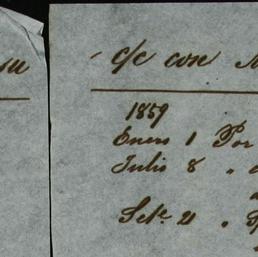 su
c/c con
1859
Enero 1 Por
Julio 8 "
Set.e 21 "